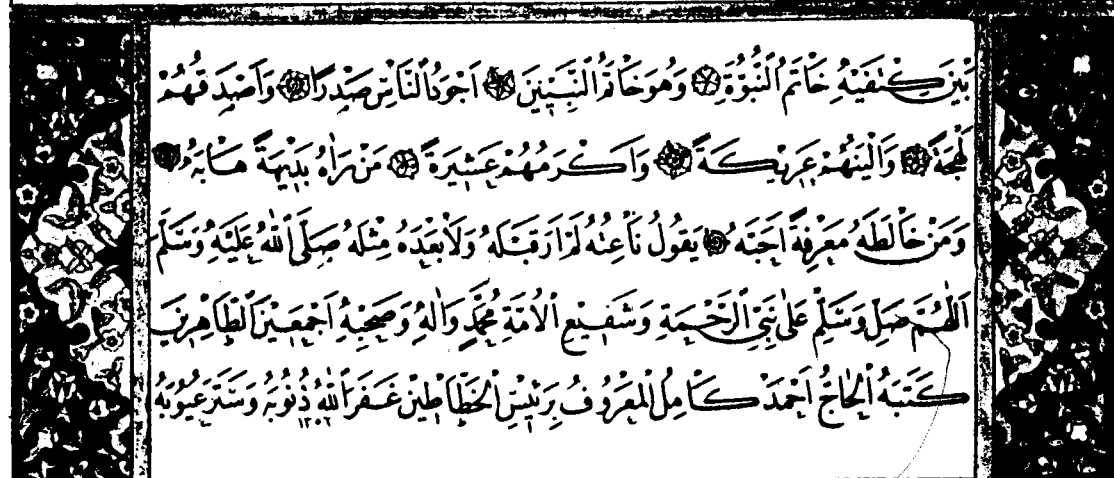 بَيْنَ كَتِفَيْهِ خَاتَمُ النُّبُوَّةِ وَهُوَ خَاتَمُ النَّبِيّ۪نَ اَجْوَدُ النَّاسِ صَدْرًا وَاَصْدَقُهُمْ
لَهْجَةً وَاَلْيَنُهُمْ عَر۪يكَةً وَاَكْرَمُهُمْ عَش۪يرَةً مَنْ رَاٰهُ بَد۪يهَةً هَابَهُ
وَمَنْ خَالَطَهُ مَعْرِفَةً اَحَبَّهُ يَقُولُ نَاعِتُهُ لَمْ اَرَ قَبْلَهُ وَلَا بَعْدَهُ مِثْلَهُ صَلَّى اللّٰهُ عَلَيْهِ وَسَلَّمَ
اَللّٰهُمَّ صَلِّ وَسَلِّمْ عَلٰى نَبِيِّ الرَّحْمَةِ وَشَف۪يعِ الْاُمَّةِ مُحَمَّدٍ وَاٰلِهِ وَصَحْبِهِ اَجْمَع۪ينَ الطَّاهِر۪ينَ
كَتَبَهُ الْحَاجُّ اَحْمَدْ كَامِلُ الْمَعْرُوفُ بِرَئ۪يسِ الْخَطَّاط۪ينَ غَفَرَ اللّٰهُ ذُنُوبَهُ وَسَتَرَ عُيُوبَهُ